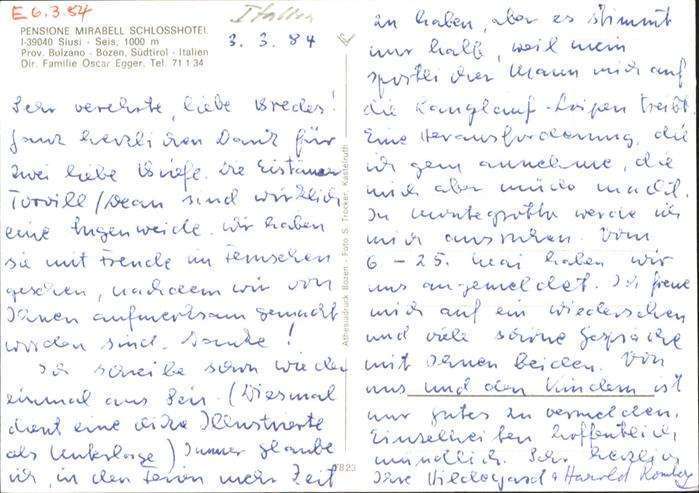 E 6.3.84
Italien
PENSIONE MIRABELL SCHLOSSHOTEL
I-39040 Siusi - Seis, 1000 m
Prov. Bolzano - Bozen, Südtirol - Italien
Dir. Familie Oscar Egger, Tel. 71 1 34
3. 3. 84
Sehr verehrte, liebe Bredes!
Ganz herzlichen Dank für
zwei liebe Briefe. Die Eistänzer
Torvill/Dean sind wirklich
eine Augenweide. Wir haben
sie mit Freude im Fernsehen
gesehen, nachdem wir von
Ihnen aufmerksam gemacht
worden sind. Danke!
Ich schreibe schon wieder
einmal aus Seis. (Diesmal
dient eine dicke Illustrierte
als Unterlage) Immer glaube
ich, in den Ferien mehr Zeit
Athesiadruck Bozen - Foto S. Trocker, Kastelruth
7823
zu haben, aber es stimmt
nur halb, weil mein
sportlicher Mann mich auf
die Langlauf-Loipen treibt.
Eine Herausforderung, die
ich gern annehme, die
mich aber müde macht.
In Montegrotto werde ich
mich ausruhen. Vom
6 - 25. Mai haben wir
uns angemeldet. Ich freue
mich auf ein Wiedersehen
und viele schöne Gespräche
mit Ihnen beiden. Von
uns und den Kindern ist
nur gutes zu vermelden.
Einzelheiten hoffentlich
mündlich. Sehr herzlich
Ihre Hildegard + Harold